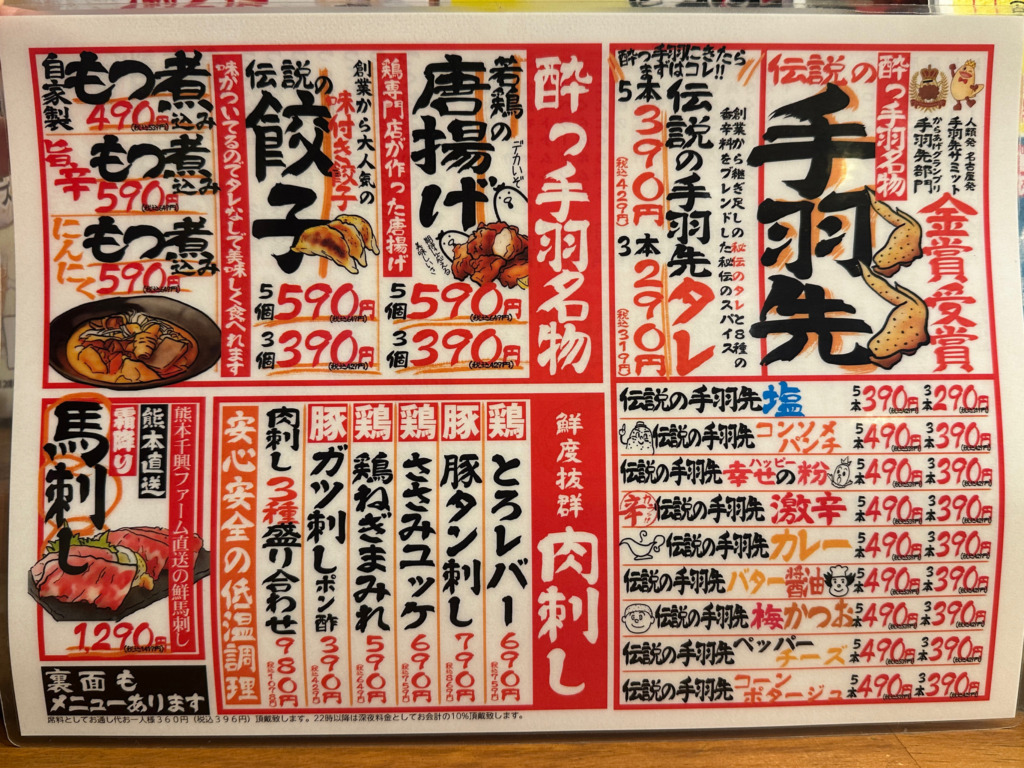 酔っ手羽名物
伝説の
手羽先
人類発 名古屋発
手羽先サミット
からあげグランプリ
手羽先部門
金賞受賞
創業から継ぎ足しの秘伝のタレと8種の
香辛料をブレンドした秘伝のスパイス
酔っ手羽にきたら
まずはコレ!!
伝説の手羽先タレ
5本390円(税込429円)
3本290円(税込319円)
伝説の手羽先 塩 5本390円(税込429円) 3本290円
伝説の手羽先 コンソメパンチ 5本490円 3本390円
伝説の手羽先 幸せの粉 ハッピー 5本490円 3本390円
伝説の手羽先 激辛 5本490円 3本390円
伝説の手羽先 カレー 5本490円 3本390円
伝説の手羽先 バター醤油 5本490円 3本390円
伝説の手羽先 梅かつお 5本490円 3本390円
伝説の手羽先 ペッパーチーズ 5本490円 3本390円
伝説の手羽先 コーンポタージュ 5本490円 3本390円
酔っ手羽名物
若鶏の
唐揚げ
デカいぞ
鶏専門店が作った唐揚げ
5個590円
3個390円
創業から大人気の
味付き餃子
伝説の
餃子
味がついてるのでタレなしで美味しく食べれます
5個590円
3個390円
自家製
もつ煮込み
490円
旨辛
もつ煮込み
590円
にんにく
もつ煮込み
590円
鮮度抜群 肉刺し
鶏 とろレバー 690円
豚 豚タン刺し 790円
鶏 ささみユッケ 690円
鶏 鶏ねぎまみれ 590円
豚 ガツ刺しポン酢 395円
肉刺し3種盛り合わせ 980円
安心安全の低温調理
熊本千興ファーム直送の鮮馬刺し
熊本直送
霜降り
馬刺し
1,290円
裏面も
メニューあります
席料としてお通し代お一人様360円(税込396円)頂戴致します。22時以降は深夜料金としてお会計の10%頂戴致します。